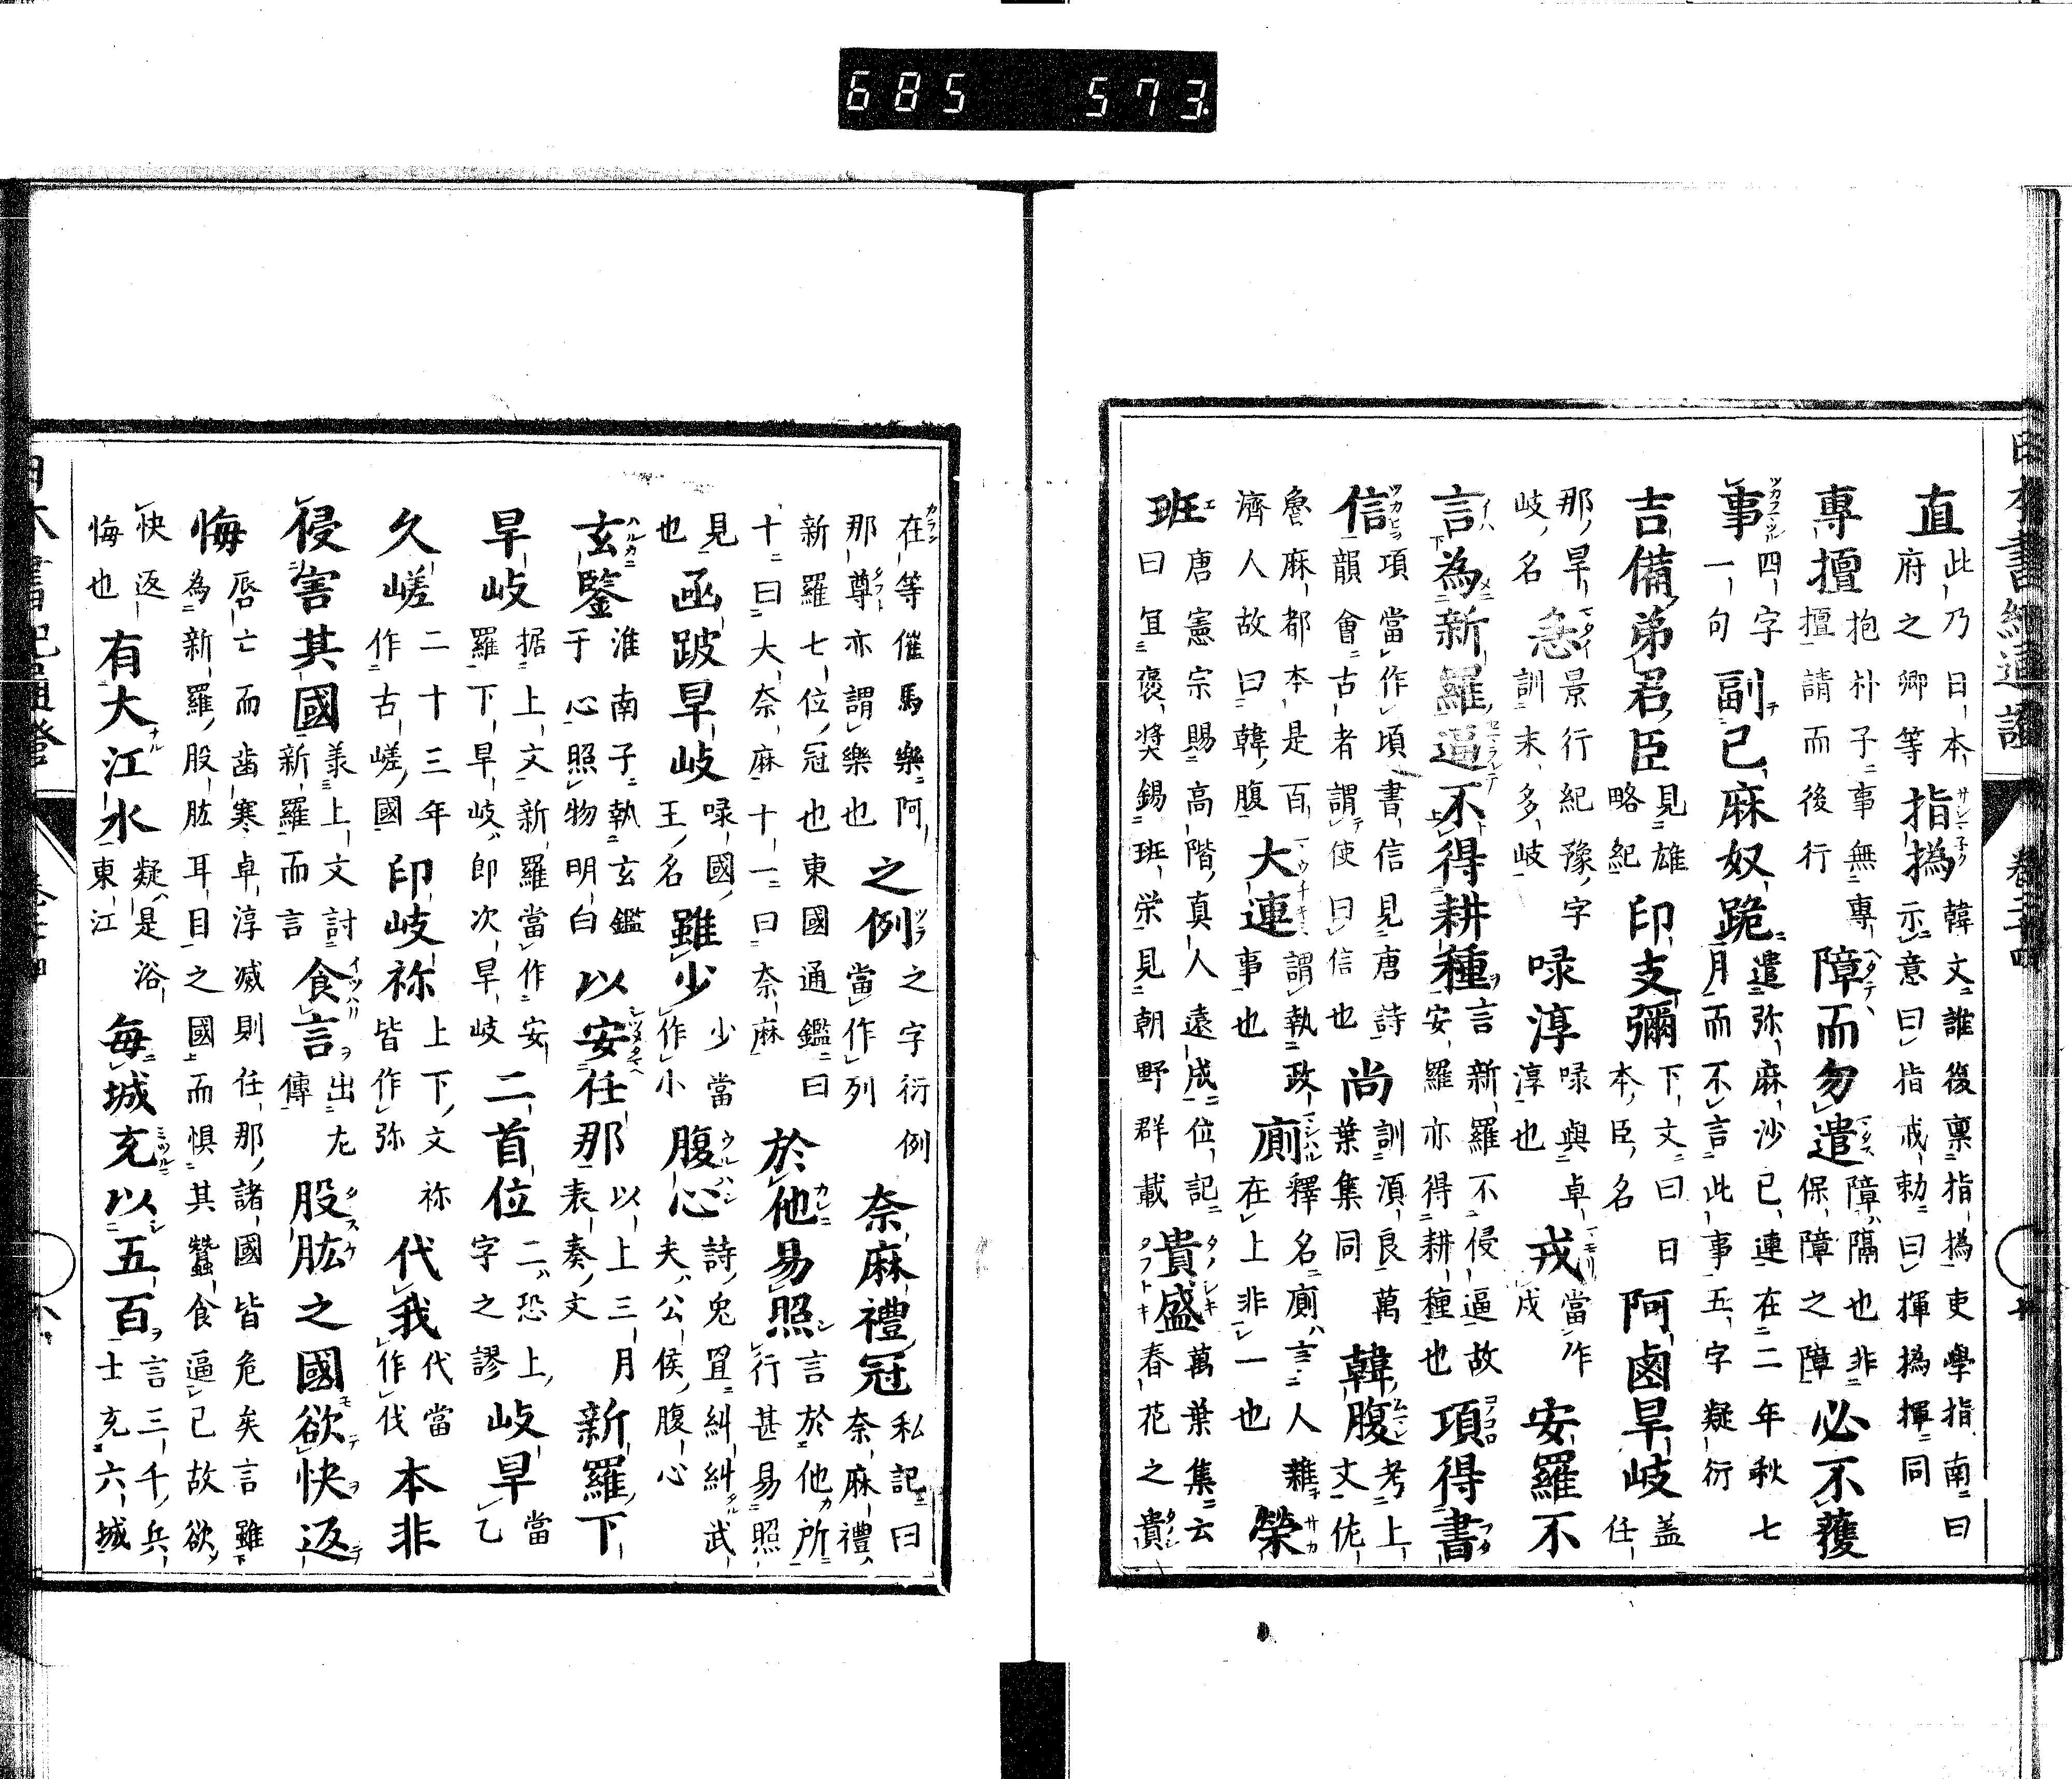 直此乃日本府之卿等指撝韓文誰復禀指撝吏學指南曰示意曰指戒勅曰揮撝揮同
專擅抱朴子事無專擅請而後行障而勿遣障隔也非保障之障必不獲
事四字一句副已麻奴跪遣弥麻沙已連在二年秋七月而不言此事五字疑衍
吉備弟君臣見雄略紀印支彌下文曰本臣名日阿鹵旱岐盖任
那旱岐名怱景行紀豫字訓末多岐㖨淳㖨與卓淳也戎當作戍安羅不
言為新羅逼不得耕種言新羅不侵逼故安羅亦得耕種也項得書
信項當作頃書信見唐詩韻會古者謂使曰信也尚訓湏良萬葉集同韓腹考上文佐
魯麻都本是百濟人故曰韓腹大連謂執政事也廁釋名廁言人雜在上非一也榮
班唐憲宗賜高階真人遠成位記曰宜褒奬錫班榮見朝野群載貴盛萬葉集云春花之貴
在等催馬樂阿那尊亦謂樂也之例之字衍例當作列奈麻禮冠私記曰奈麻禮
新羅七位冠也東國通鑑曰十曰大奈麻十一曰奈麻於他易照言於他所行甚易照
見也函跛旱岐㖨國王名雖少少當作小腹心詩兔罝糾糾武夫公侯腹心
玄鑒淮南子執玄鑑于心照物明白以安任那以上三月表奏文新羅下
旱岐据上文新羅當作安羅下旱岐即次旱岐二首位二恐上字之謬岐旱當乙
久嵯二十三年作古嵯國印岐祢上下文祢皆作弥代我代當作伐本非
侵害其國羕上文討新羅而言食言出左傳股肱之國欲快返
悔唇亡而齒寒卓淳滅則任那諸國皆危矣言雖為新羅股肱耳目之國而惧其蠶食逼已故欲
快返悔也有大江水疑是浴東江毎城充以五百言三千兵士充六城
685 573